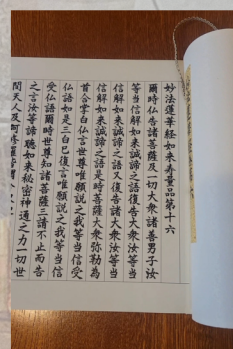 妙法蓮華経如来寿量品第十六
爾時仏告諸菩薩及一切大衆諸善男子汝
等当信解如来誠諦之語復告大衆汝等当
信解如来誠諦之語又復告諸大衆汝等当
信解如来誠諦之語是時菩薩大衆弥勒為
首合掌白仏言世尊唯願説之我等当信受
仏語如是三白已復言唯願説之我等当信
受仏語爾時世尊知諸菩薩三請不止而告
之言汝等諦聴如来秘密神通之力一切世
間天人及阿修羅